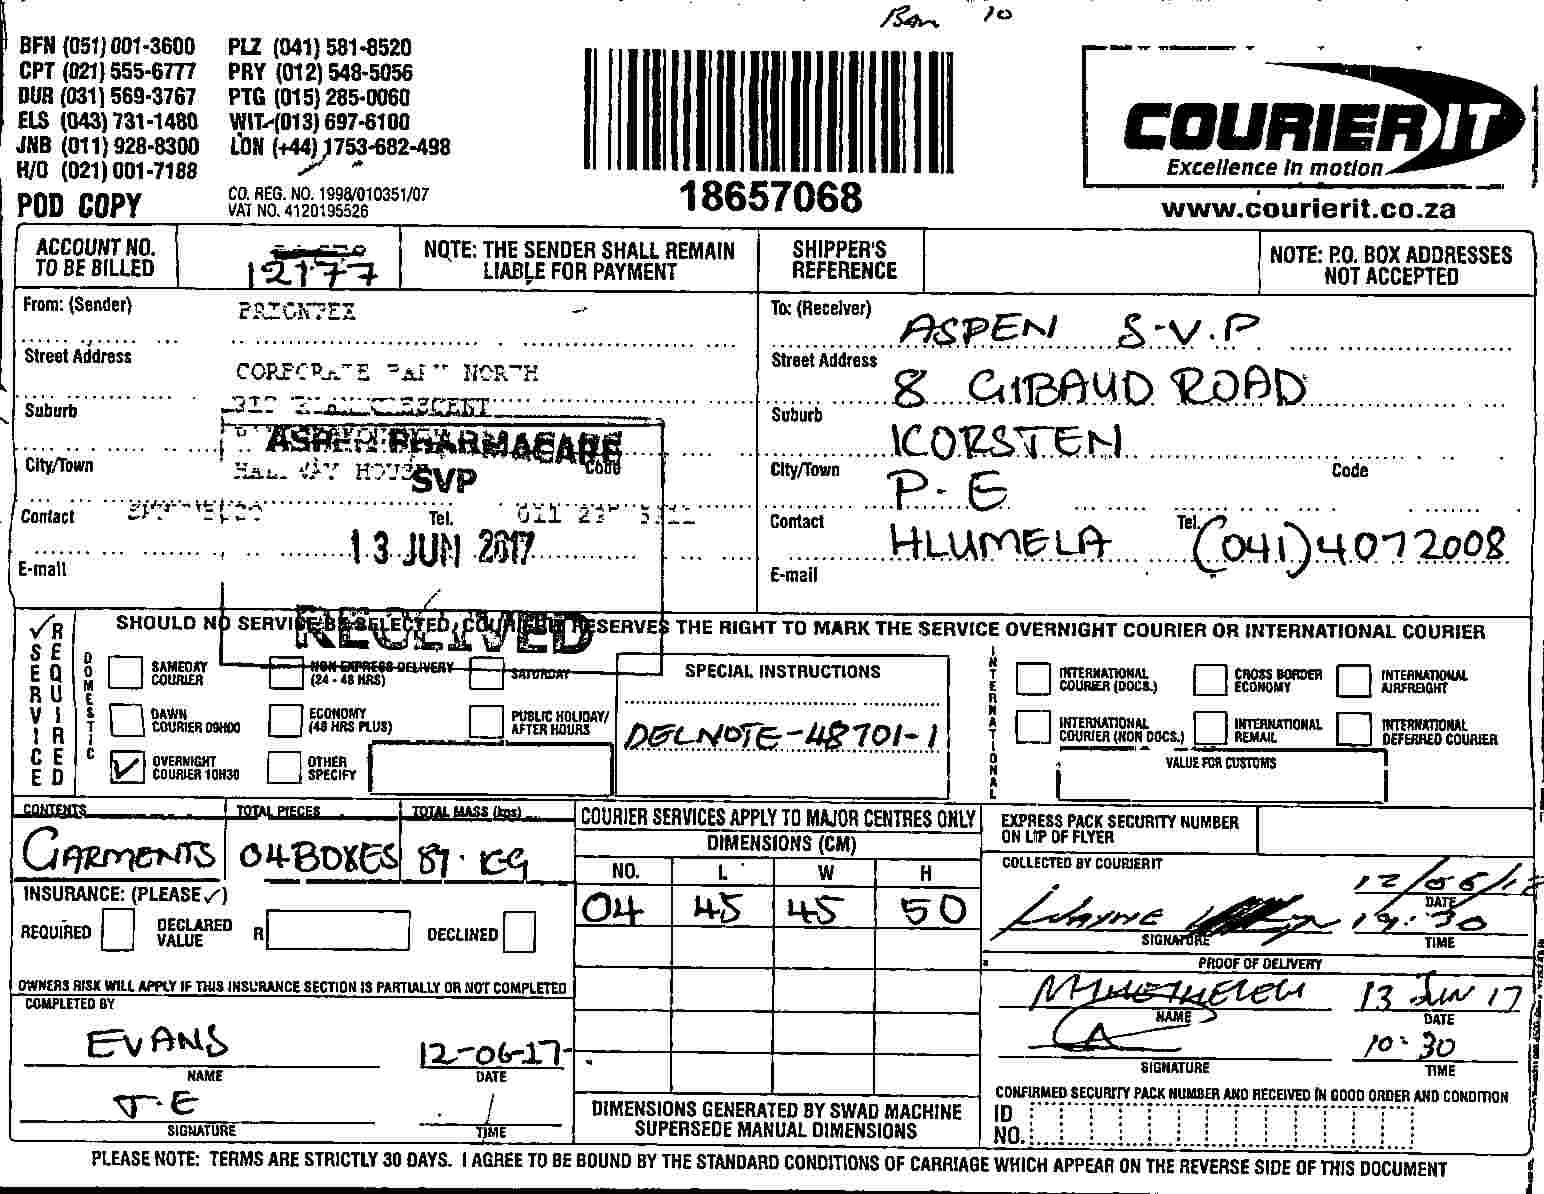 10
BFN (051) 001-3600 PLZ (041) 581-8520
CPT (021) 555-6777 PRY (012) 548-5056
DUR (031) 569-3767 PTG (015) 285-0060
ELS (043) 731-1480 WIT (013) 697-6100
JNB (011) 928-8300 LON (+44) 1753-682-498
H/O (021) 001-7188
POD COPY
CO. REG. NO. 1998/010351/07
VAT NO. 4120195526
18657068
COURIER IT
Excellence in motion
www.courierit.co.za
ACCOUNT NO.
TO BE BILLED
12177
NOTE: THE SENDER SHALL REMAIN
LIABLE FOR PAYMENT
SHIPPER'S
REFERENCE
NOTE: P.O. BOX ADDRESSES
NOT ACCEPTED
From: (Sender)
Street Address
CORPORATE PARK NORTH
Suburb
CRESCENT
City/Town HALFWAY HOUSE Code
Contact Tel. 011
E-mail
ASPEN PHARMACARE
SVP
13 JUN 2017
RECEIVED
To: (Receiver) ASPEN S.V.P
Street Address 8 GIBAUD ROAD
Suburb KORSTEN
City/Town P.E Code
Contact HLUMELA Tel. (041) 4072008
E-mail
SERVICE REQUIRED
SHOULD NO SERVICE BE SELECTED, COURIER IT RESERVES THE RIGHT TO MARK THE SERVICE OVERNIGHT COURIER OR INTERNATIONAL COURIER
DOMESTIC
SAMEDAY
COURIER
NON EXPRESS DELIVERY
(24 - 48 HRS)
SATURDAY
DAWN
COURIER 09H00
ECONOMY
(48 HRS PLUS)
PUBLIC HOLIDAY/
AFTER HOURS
OVERNIGHT
COURIER 10H30
OTHER
SPECIFY
SPECIAL INSTRUCTIONS
DELNOTE-48701-1
INTERNATIONAL
INTERNATIONAL
COURIER (DOCS.)
CROSS BORDER
ECONOMY
INTERNATIONAL
AIRFREIGHT
INTERNATIONAL
COURIER (NON DOCS.)
INTERNATIONAL
REMAIL
INTERNATIONAL
DEFERRED COURIER
VALUE FOR CUSTOMS
CONTENTS TOTAL PIECES TOTAL MASS (kgs)
GARMENTS 04 BOXES 87. KG
INSURANCE: (PLEASE ✓)
REQUIRED DECLARED
VALUE R DECLINED
OWNERS RISK WILL APPLY IF THIS INSURANCE SECTION IS PARTIALLY OR NOT COMPLETED
COMPLETED BY
EVANS 12-06-17
NAME DATE
J.E
SIGNATURE TIME
COURIER SERVICES APPLY TO MAJOR CENTRES ONLY
DIMENSIONS (CM)
NO. L W H
04 45 45 50
DIMENSIONS GENERATED BY SWAD MACHINE
SUPERSEDE MANUAL DIMENSIONS
EXPRESS PACK SECURITY NUMBER
ON LIP OF FLYER
COLLECTED BY COURIERIT
12/06/17
DATE
WAYNE 19:30
SIGNATURE TIME
PROOF OF DELIVERY
13 JUN 17
NAME DATE
10:30
SIGNATURE TIME
CONFIRMED SECURITY PACK NUMBER AND RECEIVED IN GOOD ORDER AND CONDITION
ID
NO.
PLEASE NOTE: TERMS ARE STRICTLY 30 DAYS. I AGREE TO BE BOUND BY THE STANDARD CONDITIONS OF CARRIAGE WHICH APPEAR ON THE REVERSE SIDE OF THIS DOCUMENT